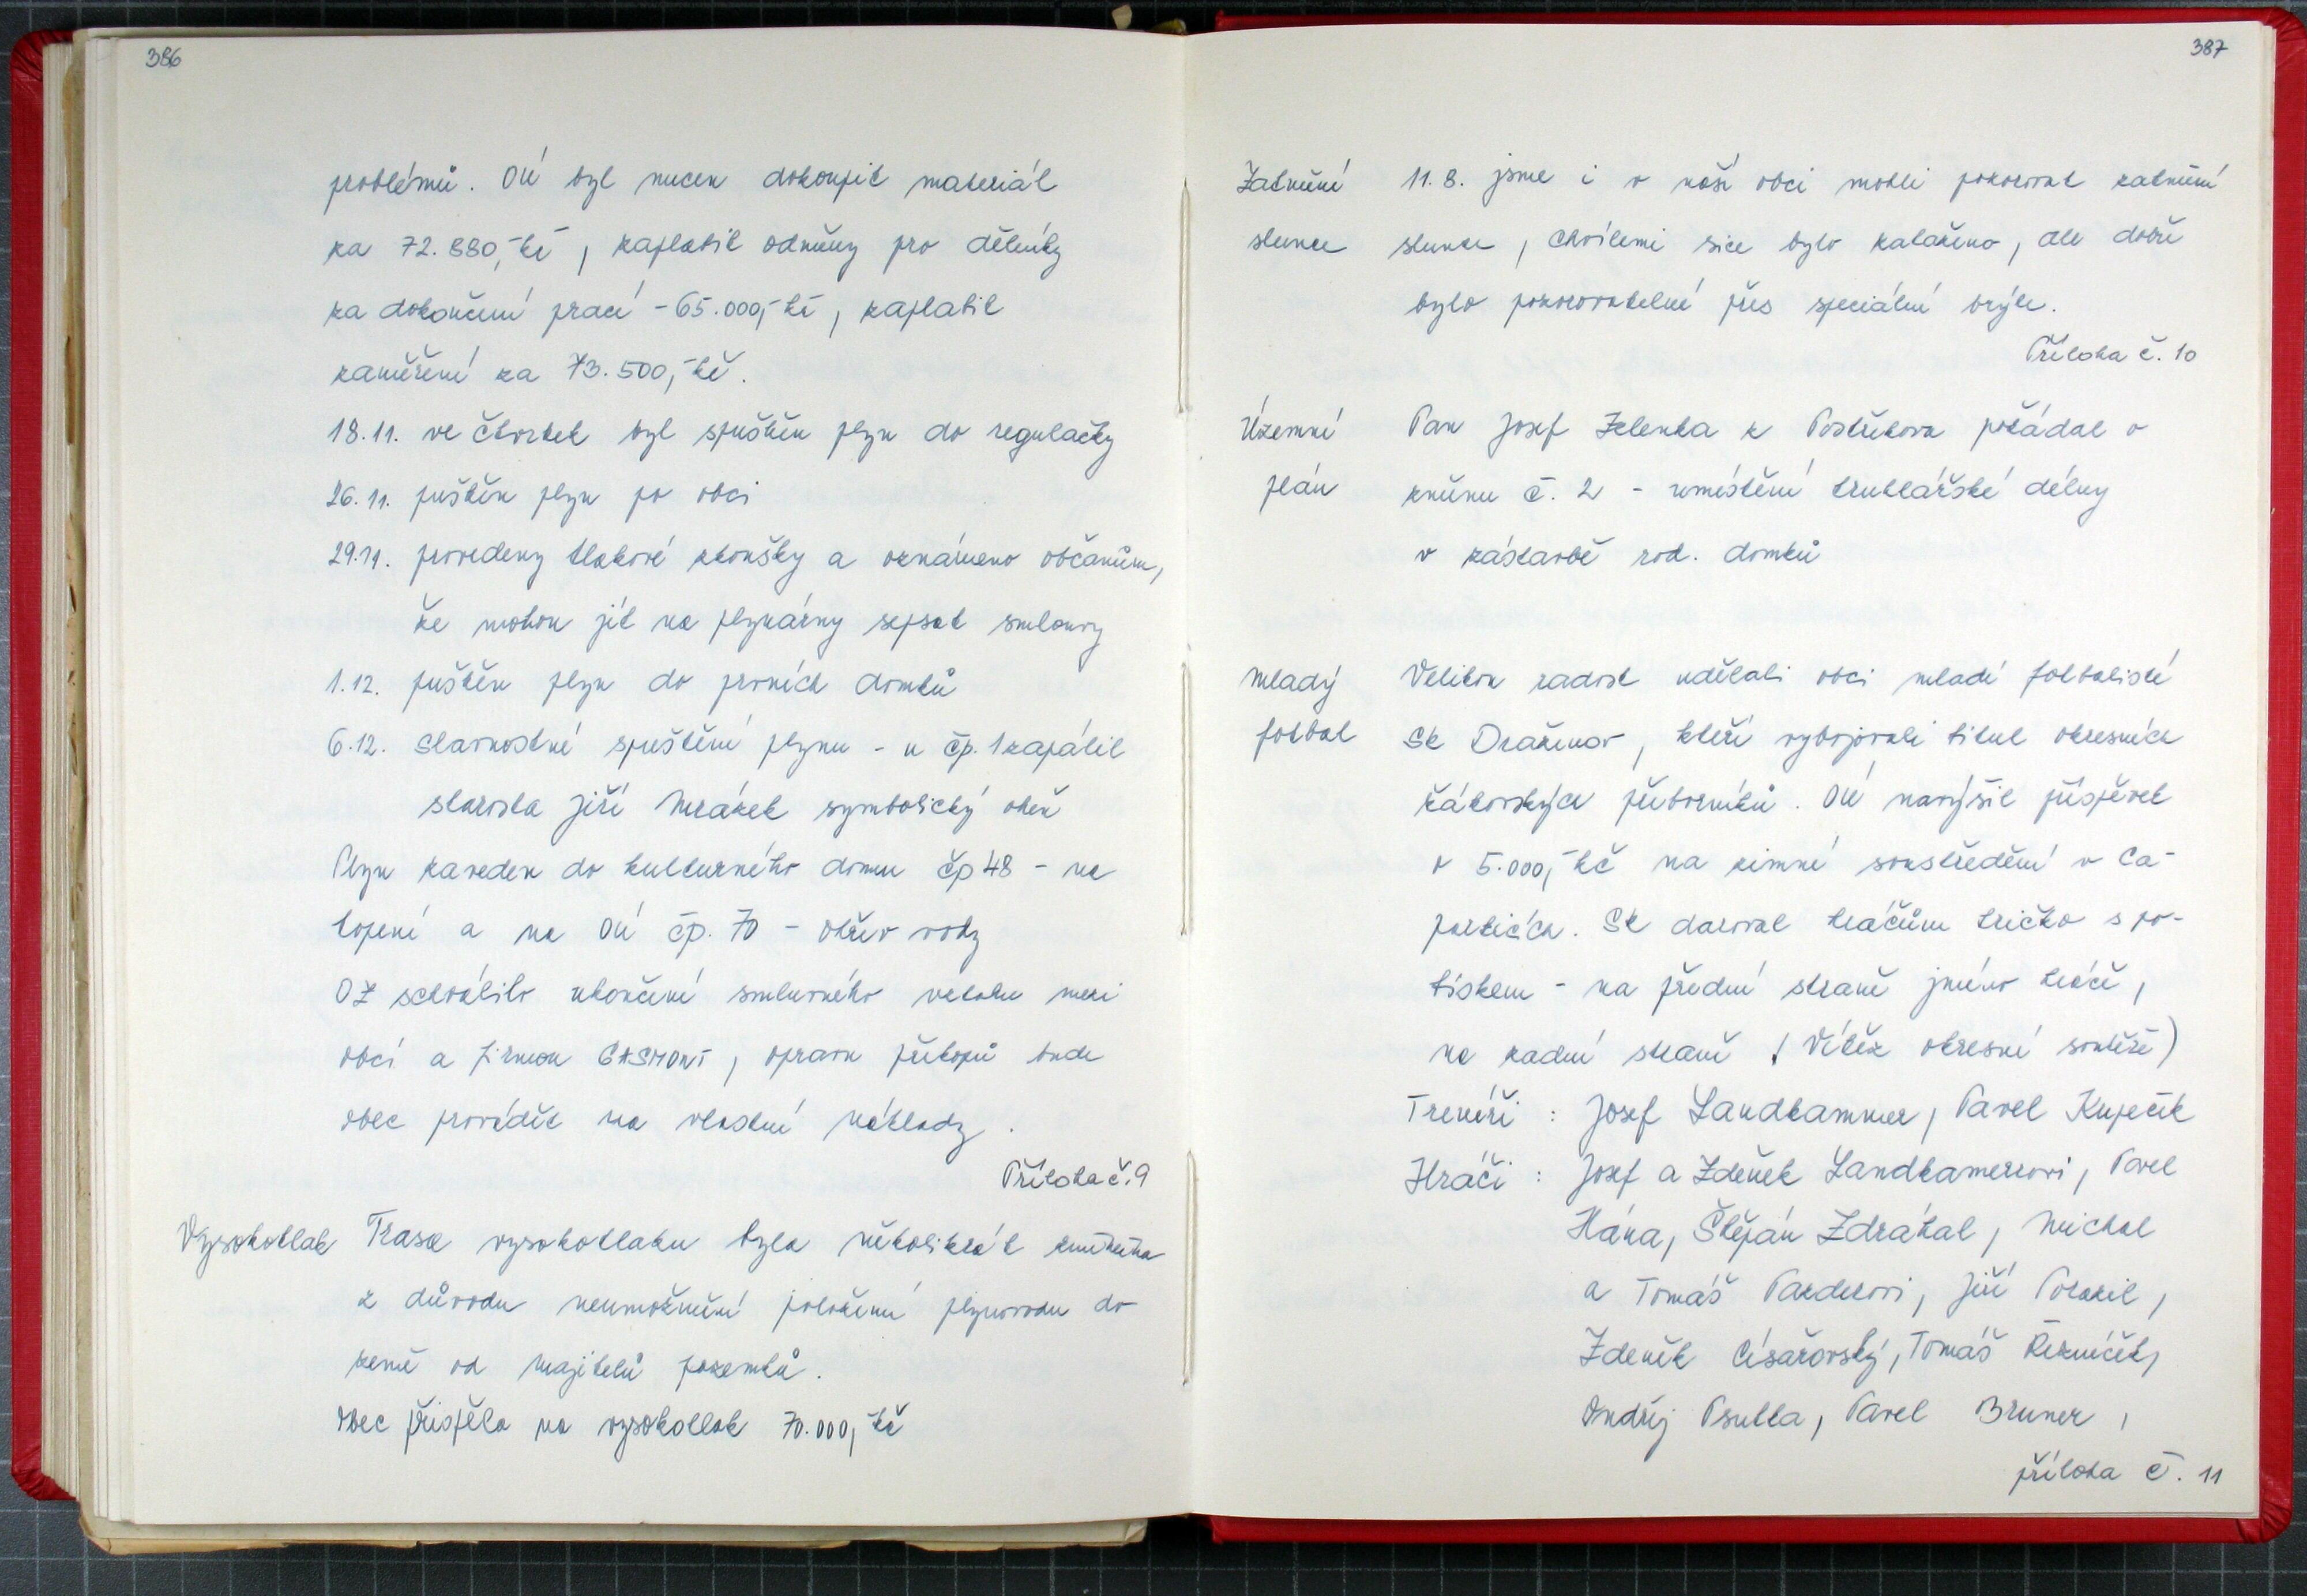 386
problémů. OÚ byl nucen dokoupit materiál
za 72.880,-kč, zaplatil odměny pro dělníky
za dokončení prací - 65.000,- kč, zaplatil
zaměření za 73.500,-kč.
18.11. ve čtvrtek byl spuštěn plyn do regulačky
26.11. puštěn plyn po obci
29.11. provedeny tlakové zkoušky a oznámeno občanům,
že mohou jít na plynárny sepsat smlouvy
1.12. puštěn plyn do prvních domků
6.12. slavnostní spuštění plynu - u čp. 1 zapálil
starosta Jiří Mrázek symbolický oheň
Plyn zaveden do kulturního domu čp 48 - na
topení a na OÚ čp. 70 - ohřev vody
OZ schválilo ukončení smluvního vztahu mezi
obcí a firmou GASMONT, opravu příkopů bude
obec provádět na vlastní náklady.
Příloha č. 9
Vysokotlak Trasa vysokotlaku byla několikrát změněna
z důvodu neumožnění položení plynovodu do
země od majitelů pozemků.
Obec přispěla na vysokotlak 70.000,-kč
387
Zatmění 11.8. jsme i v naší obci mohli pozorovat zatmění
slunce slunce, chvílemi sice bylo zataženo, ale dobře
bylo pozorovatelné přes speciální brýle.
Příloha č. 10
Územní Pan Josef Zelenka z Postřekova požádal o
plán změnu č. 2 - umístění truhlářské dílny
v zástavbě rod. domků
Mladý Velikou radost udělali obci mladí fotbalisté
fotbal SK Draženov, kteří vybojovali titul okresních
žákovských přeborníků. OÚ navýšil příspěvek
o 5.000,-kč na zimní soustředění v Ca-
particích. SK daroval hráčům tričko s po-
tiskem - na přední straně jméno hráče,
na zadní straně (Vítěz okresní soutěže)
Trenéři : Josef Landkammer, Pavel Kupečík
Hráči : Josef a Zdeněk Landkamerovi, Pavel
Hána, Štěpán Zdráhal, Michal
a Tomáš Pazderovi, Jiří
Zdeněk Císařovský, Tomáš Řezníček,
Ondřej Psutka, Pavel Bruner,
příloha č. 11